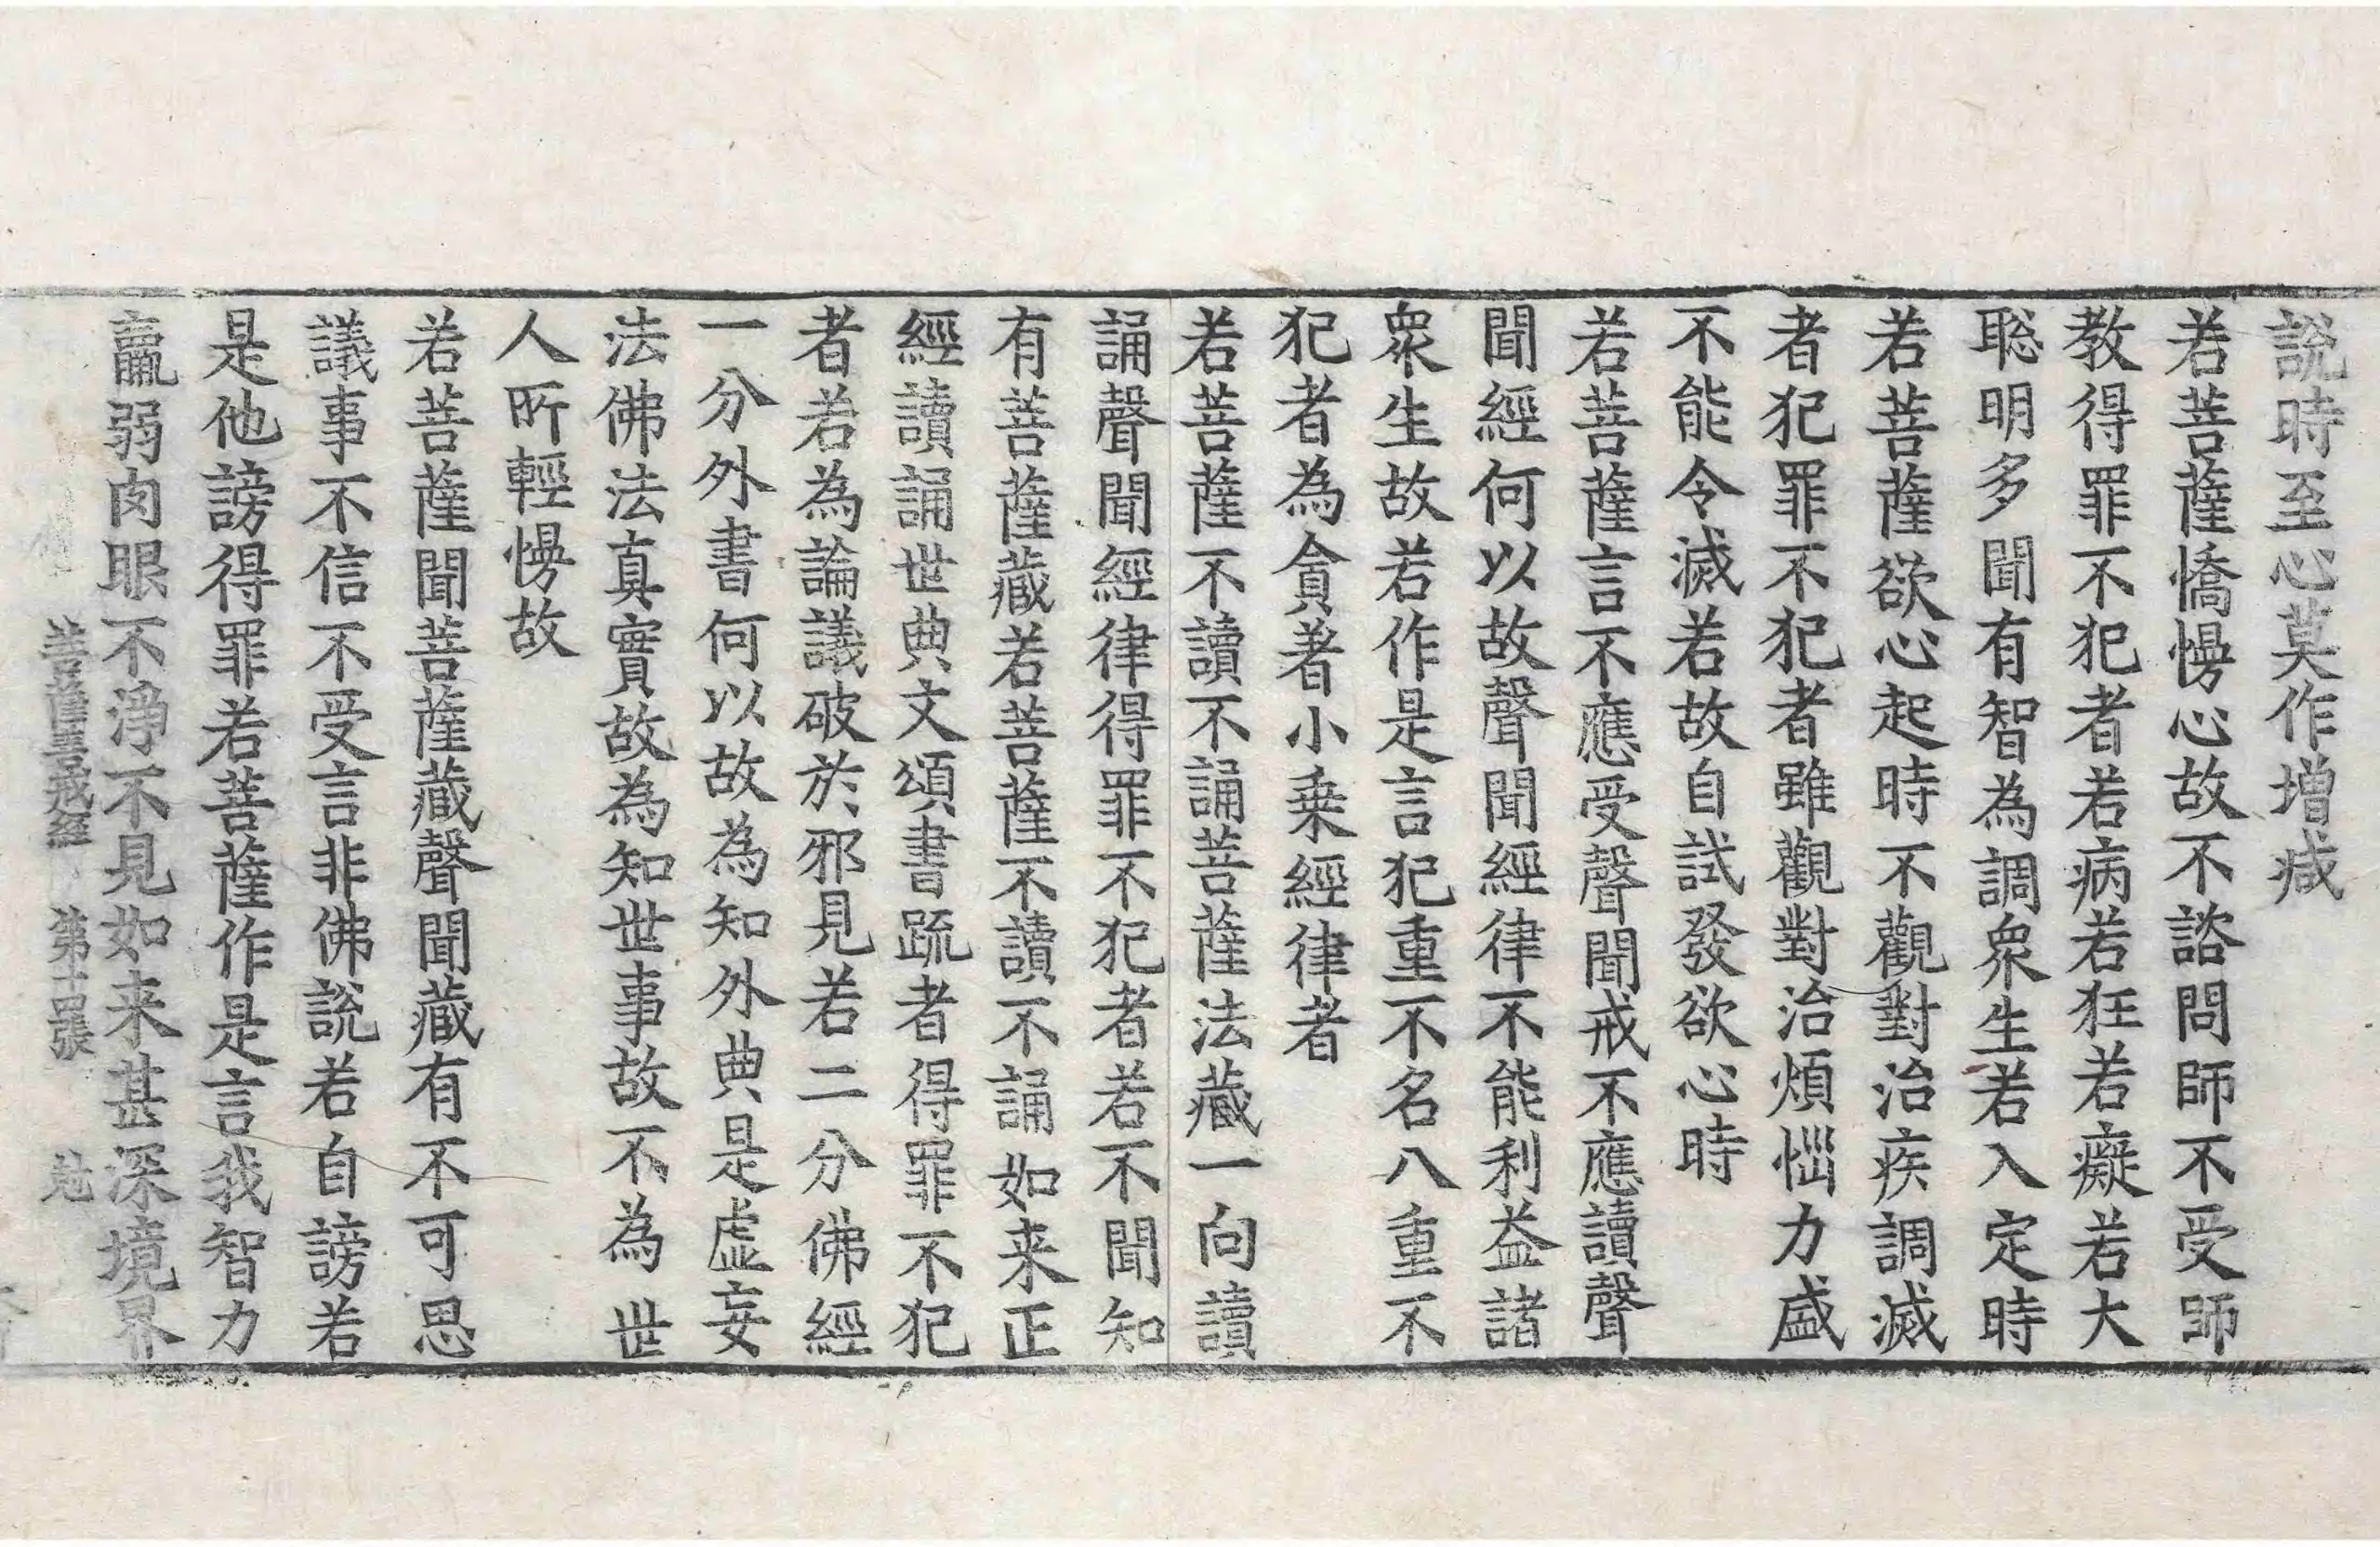 說時至心莫作增減
若菩薩憍慢心故不諮問師不受師
教得罪不犯者若病若狂若癡若大
聡明多聞有智為調衆生若入定時
若菩薩欲心起時不觀對治疾調滅
者犯罪不犯者雖觀對治煩惱力盛
不能令滅若故自試發欲心時
若菩薩言不應受聲聞戒不應讀聲
聞經何以故聲聞經律不能利益諸
衆生故若作是言犯重不名八重不
犯者為貪著小乗經律者
若菩薩不讀不誦菩薩法藏一向讀
誦聲聞經律得罪不犯者若不聞知
有菩薩藏若菩薩不讀不誦如来正
經讀誦世典文頌書䟽者得罪不犯
者若為論議破於邪見若二分佛經
一分外書何以故為知外典是虛妄
法佛法真實故為知世事故不為世
人所輕慢故
若菩薩聞菩薩藏聲聞藏有不可思
議事不信不受言非佛說若自謗若
是他謗得罪若菩薩作是言我智力
羸弱肉眼不淨不見如来甚深境界
菩薩善戒經 第十四張